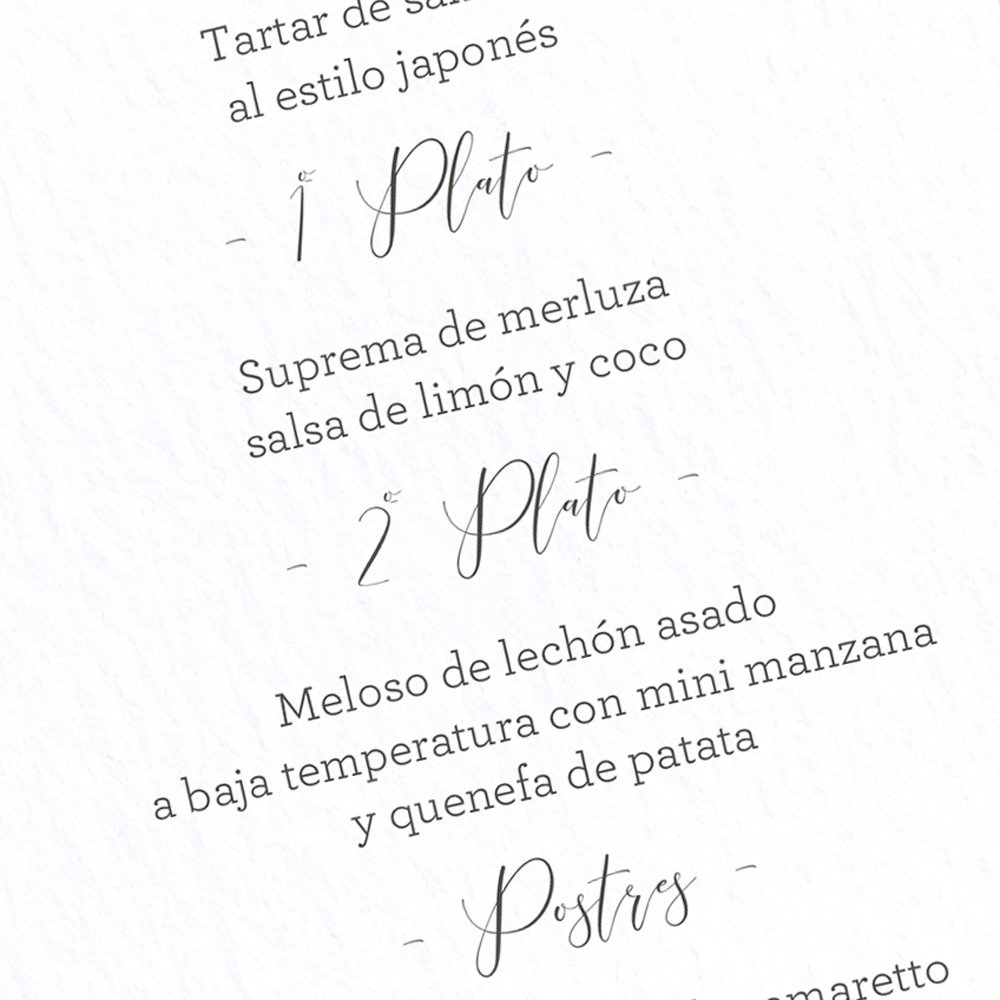 Tartar de
al estilo japonés
- 1º Plato -
Suprema de merluza
salsa de limón y coco
- 2º Plato -
Meloso de lechón asado
a baja temperatura con mini manzana
y quenefa de patata
- Postres -
amaretto